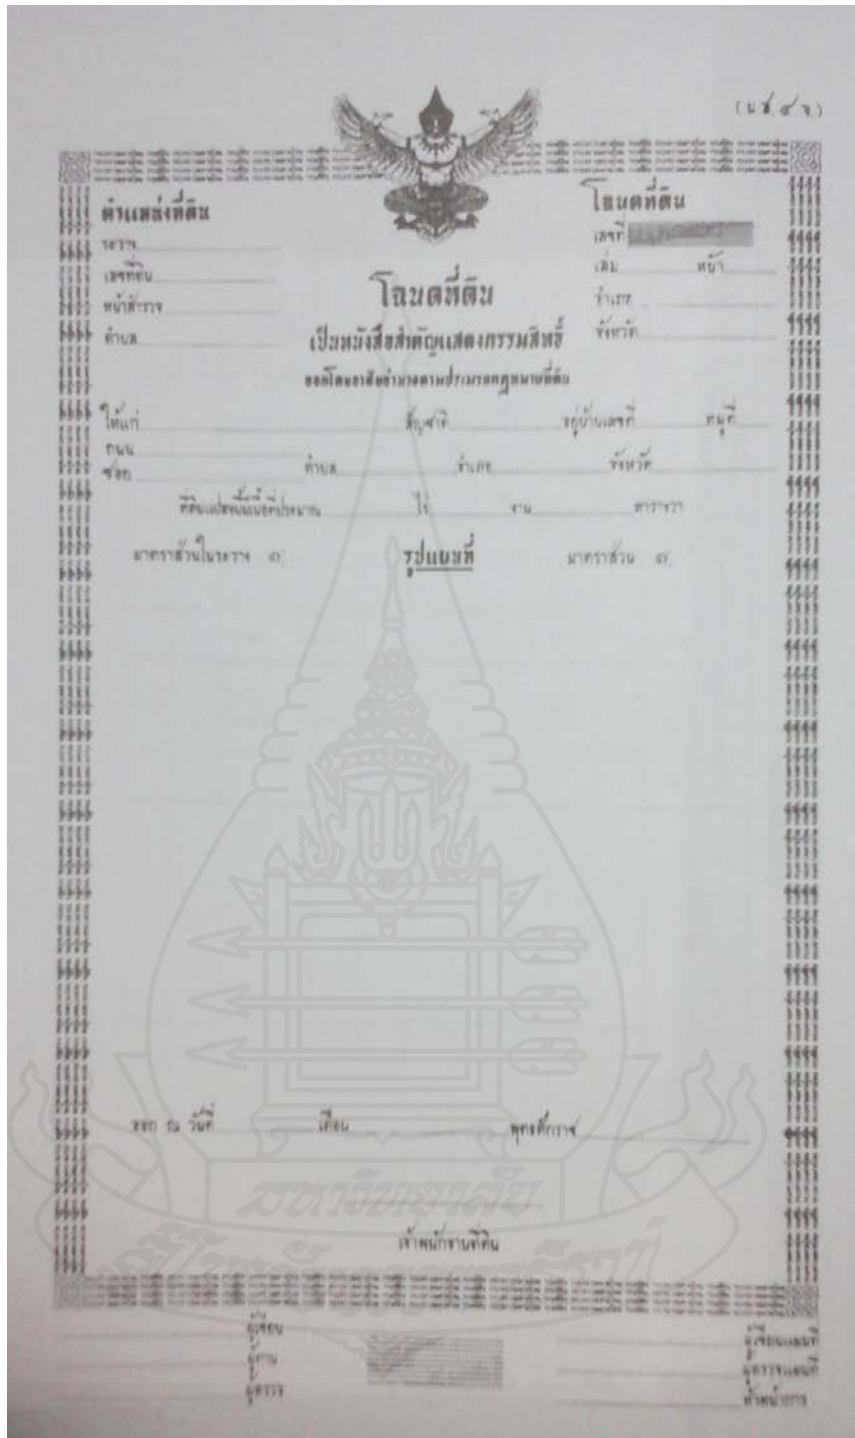 (น.ส. ๔ จ.)
ตำแหน่งที่ดิน
ระวาง
เลขที่ดิน
หน้าสำรวจ
ตำบล
โฉนดที่ดิน
เลขที่
เล่ม หน้า
อำเภอ
จังหวัด
โฉนดที่ดิน
เป็นหนังสือสำคัญแสดงกรรมสิทธิ์
ออกโดยอาศัยอำนาจตามประมวลกฎหมายที่ดิน
ให้แก่ สัญชาติ อยู่บ้านเลขที่ หมู่ที่
ถนน
ซอย ตำบล อำเภอ จังหวัด
ที่ดินแปลงนี้มีเนื้อที่ประมาณ ไร่ งาน ตารางวา
มาตราส่วนในระวาง ๑: รูปแผนที่ มาตราส่วน ๑:
ออก ณ วันที่ เดือน พุทธศักราช
มหาวิทยาลัย
สุโขทัยธรรมาธิราช
เจ้าพนักงานที่ดิน
ผู้เขียน
ผู้ทาน
ผู้ตรวจ
ผู้เขียนแผนที่
ผู้ตรวจแผนที่
หัวหน้าการ